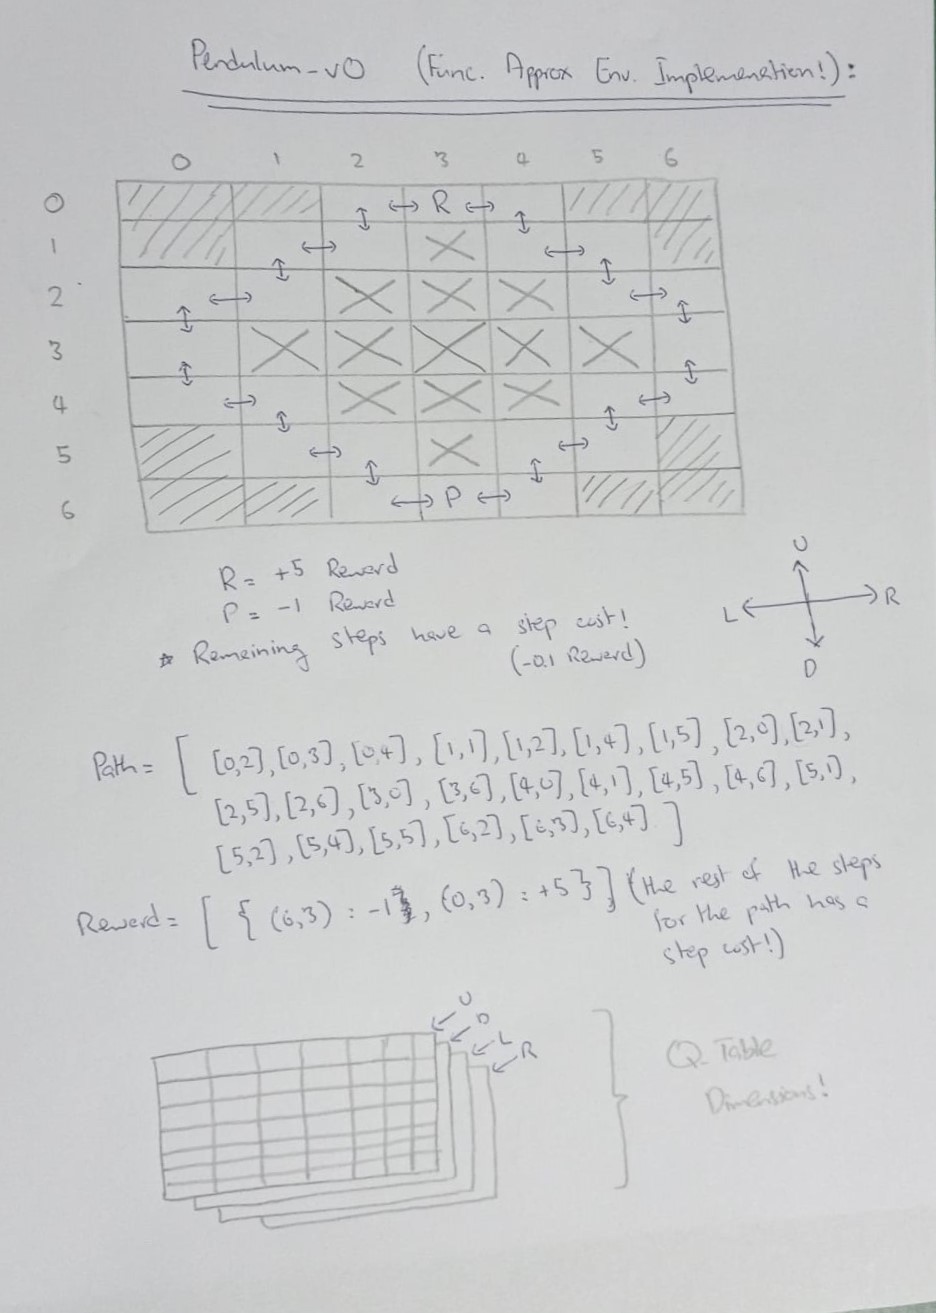 Pendulum-v0 (Func. Approx Env. Implemenetation!):
0 1 2 3 4 5 6
0 R
1
2
3
4
5
6 P
R = +5 Reward
P = -1 Reward
* Remaining steps have a step cost!
(-0.1 Reward)
U
L R
D
Path = [ [0,2], [0,3], [0,4], [1,1], [1,2], [1,4], [1,5], [2,0], [2,1],
[2,5], [2,6], [3,0], [3,6], [4,0], [4,1], [4,5], [4,6], [5,1],
[5,2], [5,4], [5,5], [6,2], [6,3], [6,4] ]
Reward = [ { (6,3) : -1, (0,3) : +5 } ] (the rest of the steps
for the path has a
step cost!)
U
D
L
R
Q-Table
Dimensions!